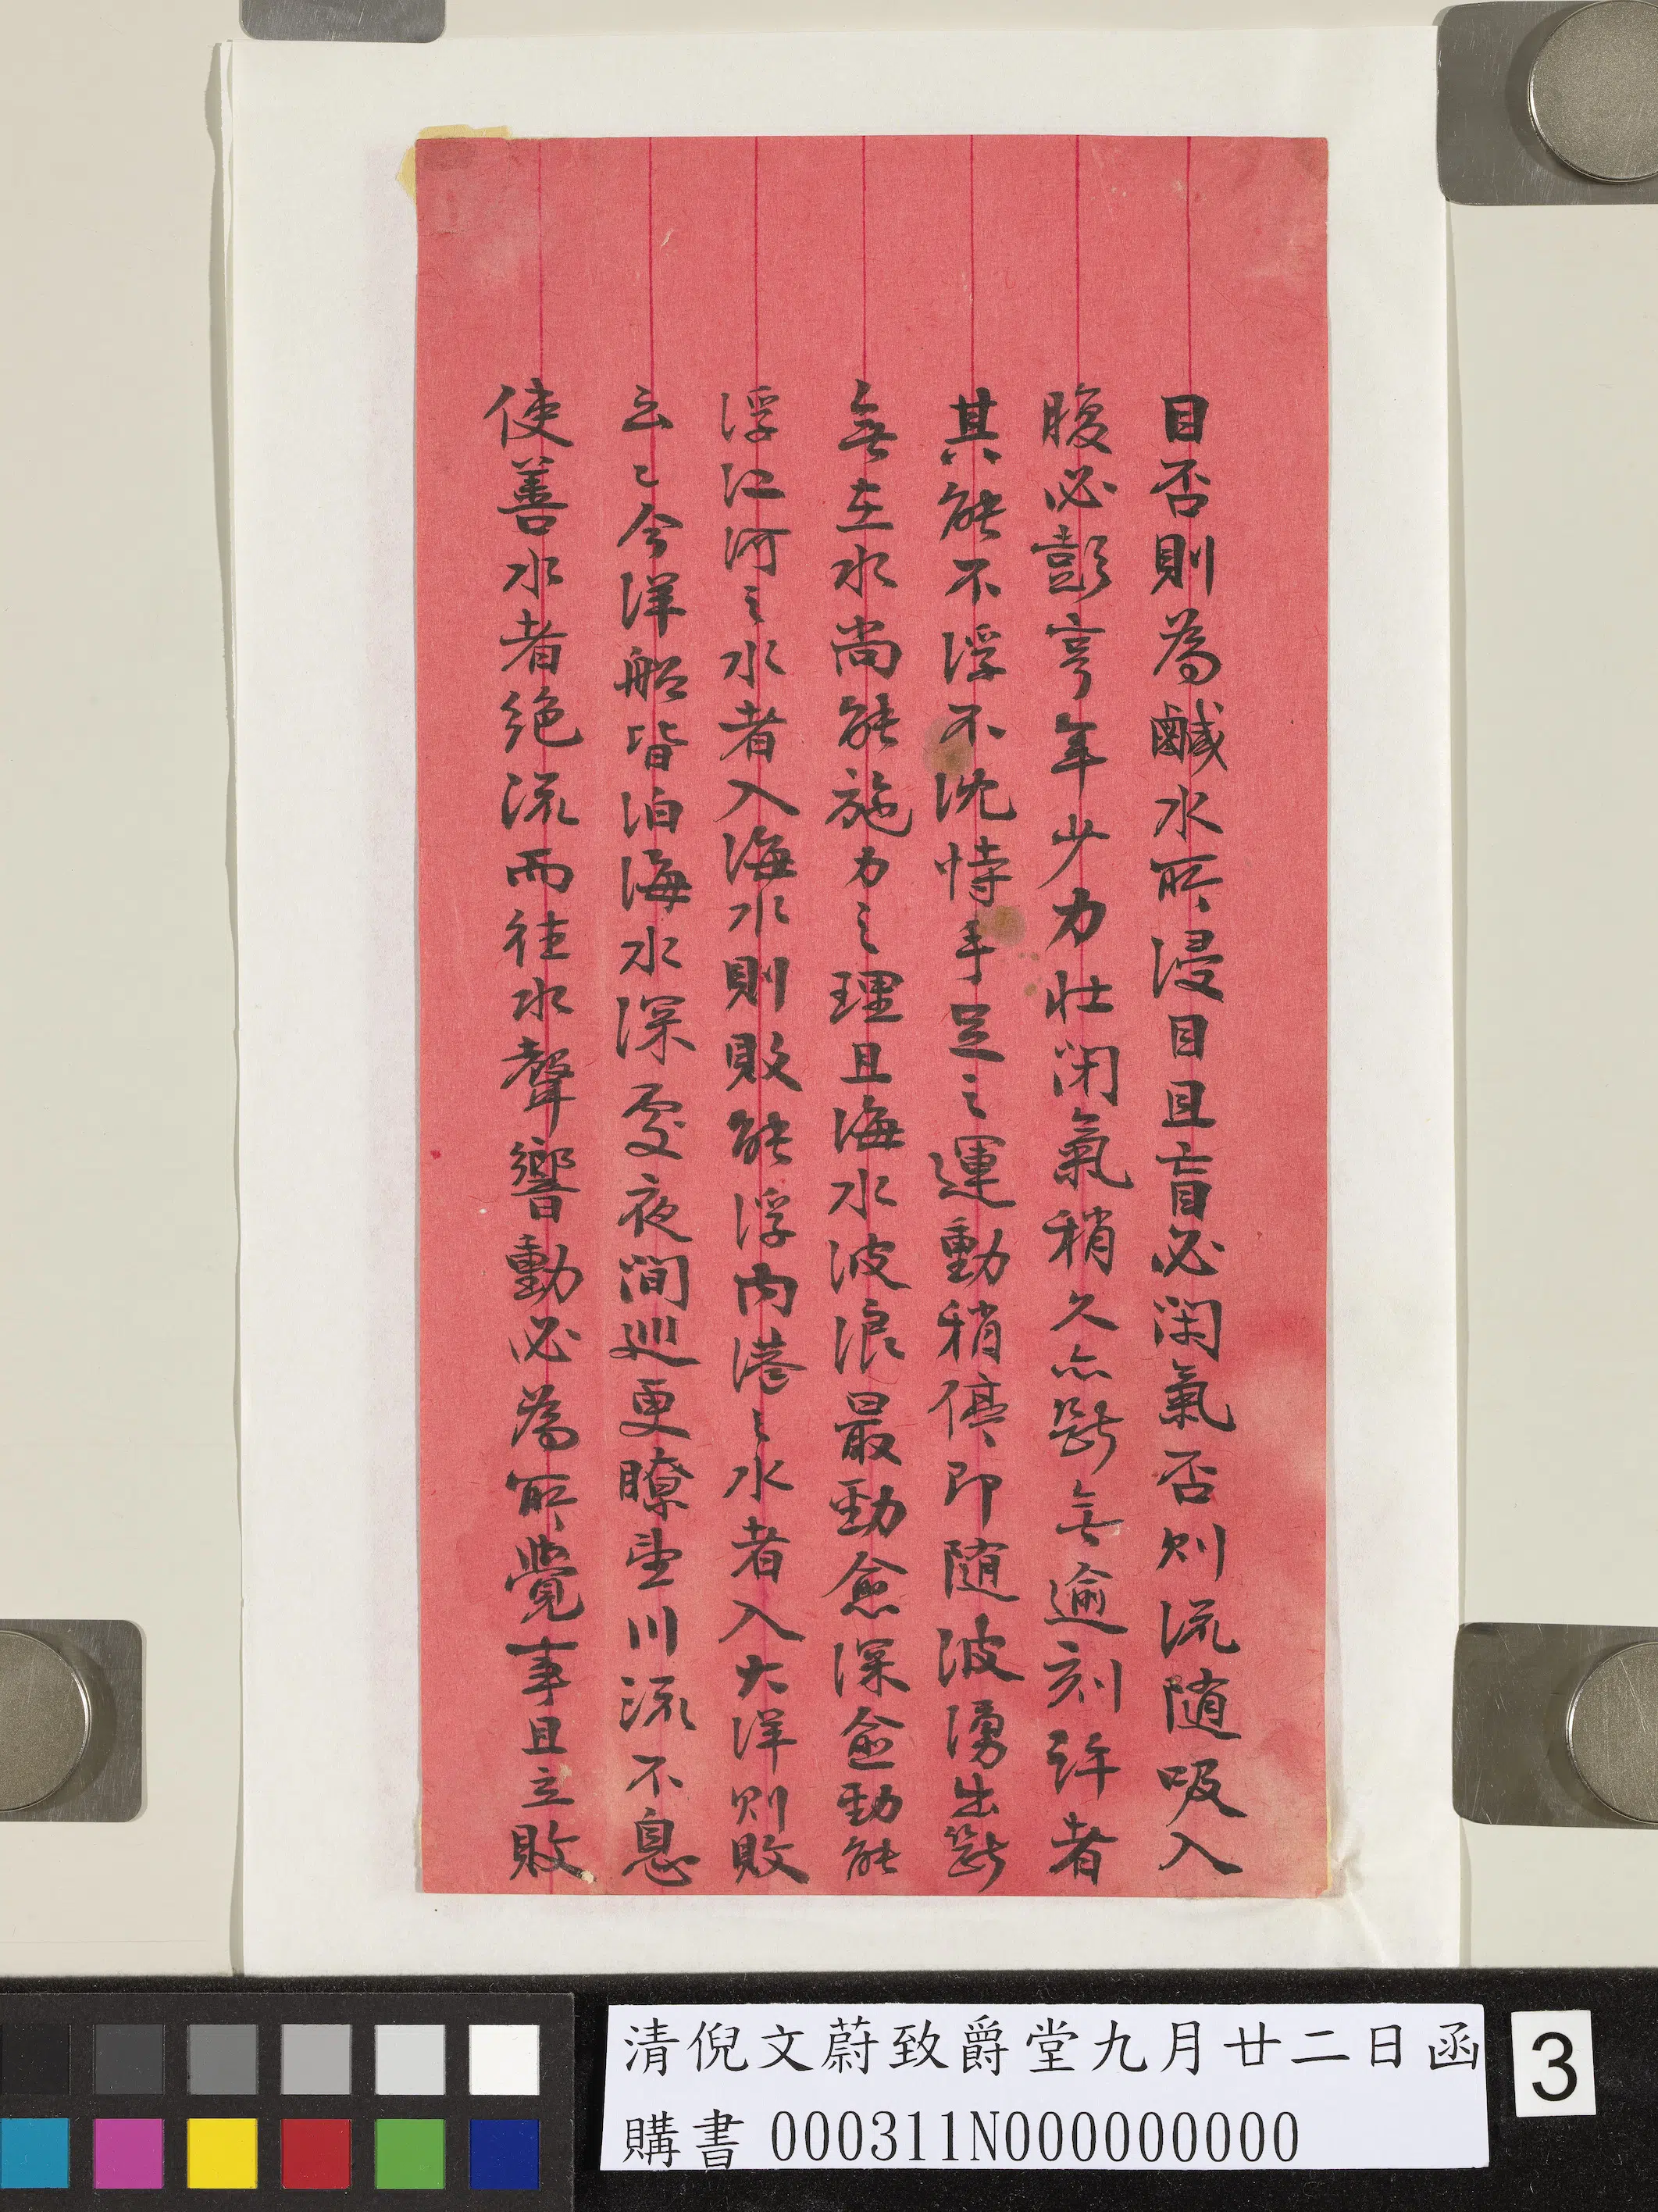 目否則為鹹水所浸目且盲必閉氣否則流随吸入
腹必彭亨年少力壯閉氣稍久亦斷無逾刻許者
其能不浮不沈恃手足之運動稍停即随波湧出斷
無在水尚能施力之理且海水波浪最勁愈深愈勁能
浮江河之水者入海水則敗能浮內港之水者入大洋則敗
云云今洋船皆泊海水深處夜間巡更瞭望川流不息
使善水者絕流而往水聲響動必為所覺事且立敗
清倪文蔚致爵堂九月廿二日函
購書 000311N000000000
3